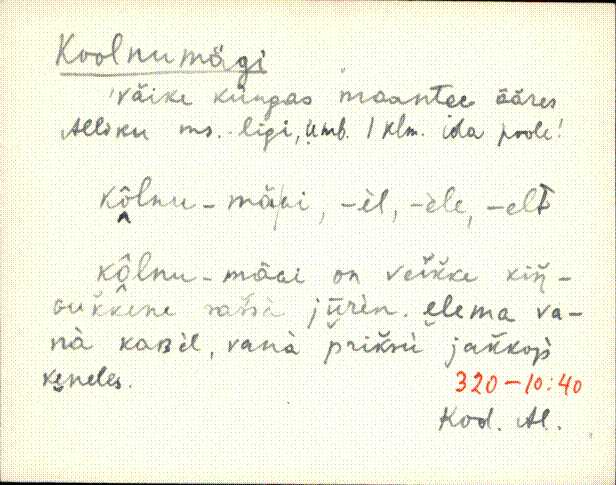 Koolnumägi
väike küngas maantee ääres
Alliku ms. ligi, umb. 1 klm. ida poole!
kôlnu-mäɢi, -èl, -èle, -elt
kôlnu-mäɢi on veikke kiŋ-
jürèn. elema va-
nà kaʙèl, vanà priksù jakkoṕi
keneles.
320-10:40
Kod. Al.